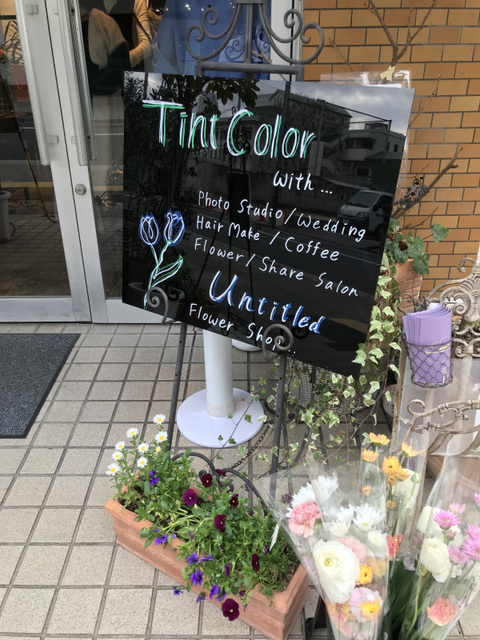 Tint Color
with...
Photo Studio/Wedding
Hair Make/Coffee
Flower/Share Salon
Untitled
Flower Shop...